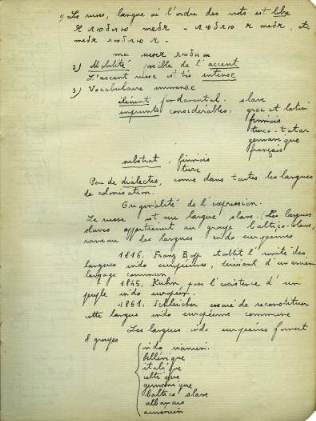 1) Le russe, langue où l'ordre des mots est libre
Я люблю тебя - люблю я тебя, etc
тебя люблю я.
2) Mobilité visible de l'accent
L'accent russe est très intense
3) Vocabulaire immense
élément fondamental - slave
emprunts considérables. grec et latin
finnois
turco-tatar
germanique
français
substrat finnois
turc
Peu de dialectes, comme dans toutes les langues
de colonisation.
Originalité de l'expression.
Le russe est une langue slave. Les langues
slaves appartiennent au groupe baltico-slave,
rameau des langues indo européennes
1816. Franz Bopp établit l'unité des
langues indo européennes, venant d'un ancien
langage commun
1845. Kuhn pose l'existence d'un
peuple indo européen
1861. Schleicher essaie de reconstituer
cette langue indo européenne commune
Les langues indo européennes forment
8 groupes
indo iranien
hellénique
italique
celtique
germanique
baltico slave
albanais
arménien